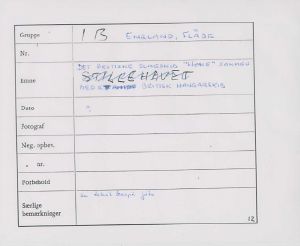 Gruppe 1 B ENGLAND, FLÅDE
Nr.
DET BRITISKE SLAGSKIB "HOWE" SAMMEN
Emne STILLEHAVET
MED ET BRITISK HANGARSKIB
Dato
Fotograf
Neg. opbev.
" nr.
Forbehold
Særlige
bemærkninger 12